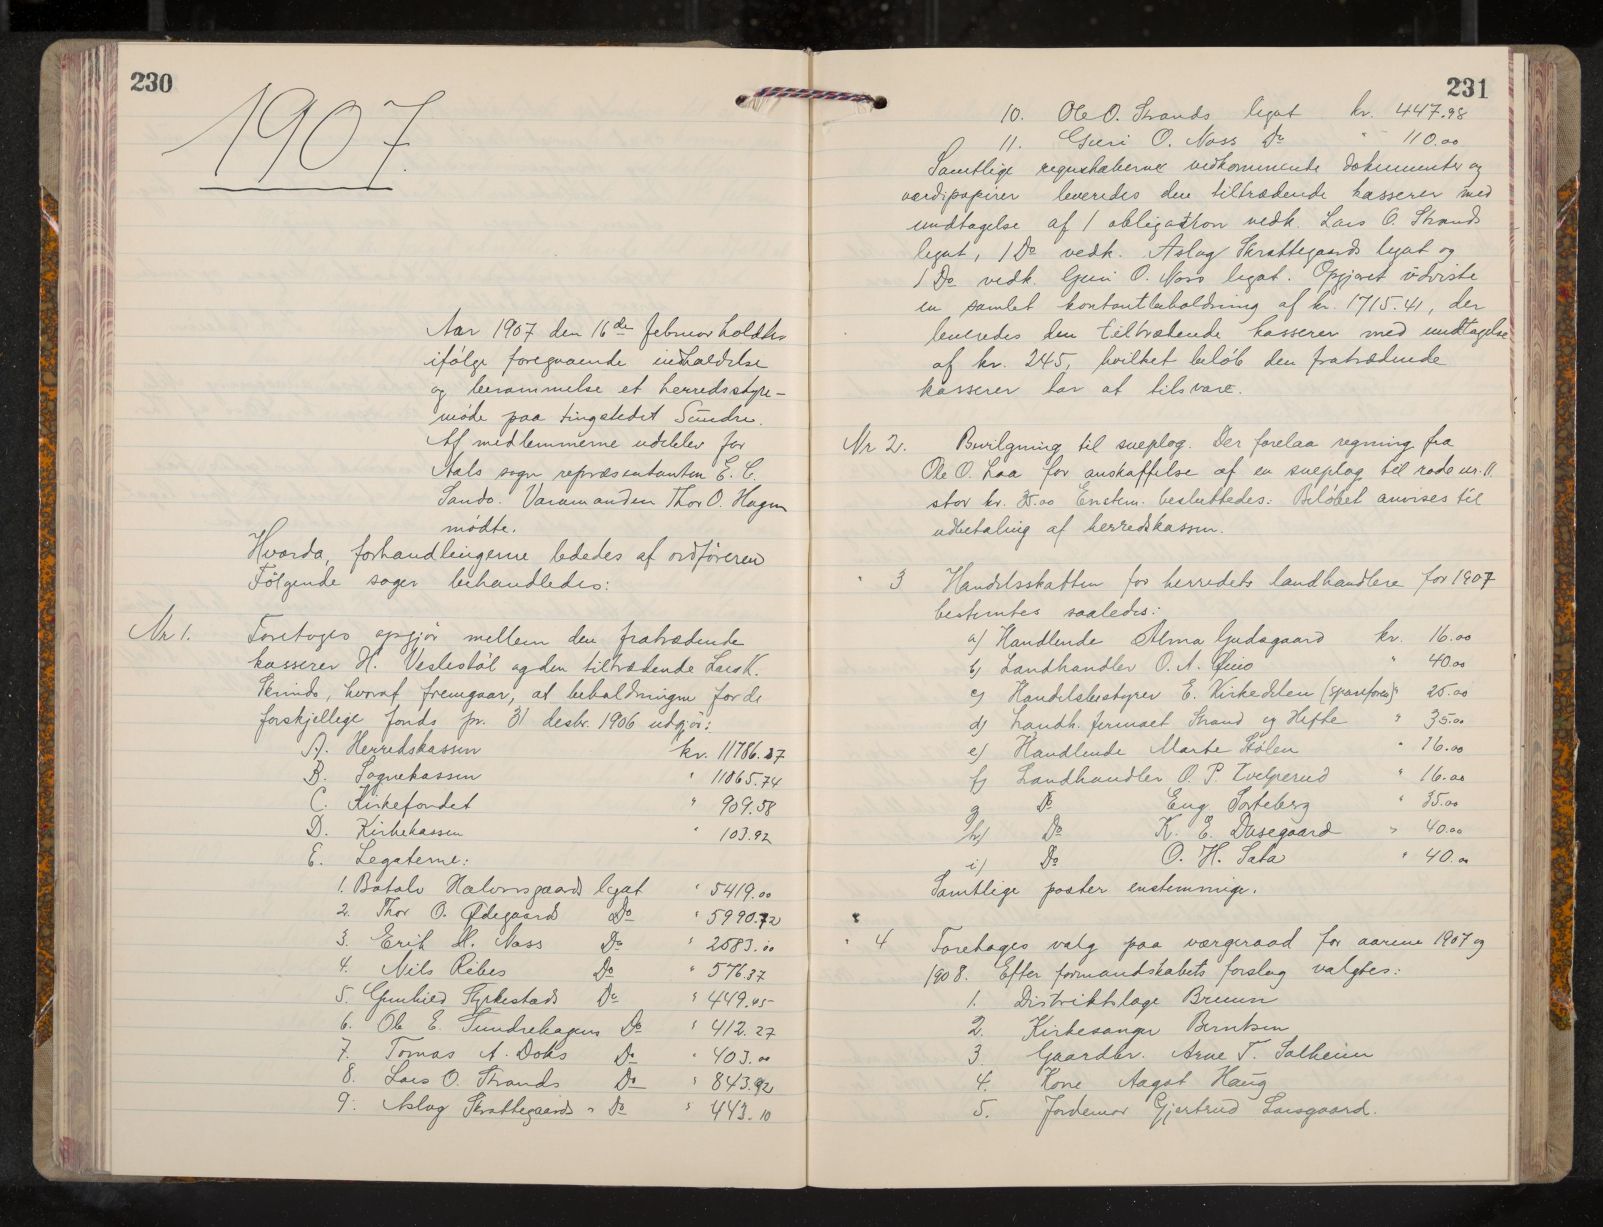 230
1907.
Aar 1907 den 16de februar holdtes
ifølge foregaaende indkaldelse
og berammelse et herredsstyre-
møde paa tingstedet Sundre.
Af medlemmerne udeblev for
Aals sogn repræsentanten E. E.
Sando. Varamanden Thor O. Hagen
mødte.
Hvorda forhandlingerne lededes af ordføreren
Følgende sager behandledes:
Nr 1. Foretoges opgjør mellem den fratrædende
kasserer H. Veslestøl og den tiltrædende Lars K.
Skrindo, hvoraf fremgaar, at beholdningen for de
forskjellige fonds pr. 31 desbr. 1906 udgjør:
A. Herredskassen kr. 11786.37
B. Sognekassen " 11065.74
C. Kirkefondet " 909.58
D. Kirkekassen " 103.92
E. Legaterne:
1. Botolv Halvorsgaards legat " 5419.00
2. Thor O. Ødegaards Do " 5990.72
3. Erik H. Noss Do " 2583.00
4. Nils Ribes Do " 576.37
5. Gunhild Styrkestads Do " 449.45
6. Ole E. Sundrehagens Do " 412.27
7. Tomas A. Doks Do " 403.00
8. Lars O. Strands Do " 843.92
9. Aslag Skrattegaards " Do " 443.10
231
10. Ole O. Strands legat kr. 447.98
11. Guri O. Noss Do " 110.00
Samtlige regnskaberne vedkommende dokumenter og
værdipapirer leveredes den tiltrædende kasserer med
undtagelse af 1 obligation vedk. Lars O. Strands
legat, 1 Do vedk. Aslag Skrattegaards legat og
1 Do vedk. Guri O. Noss legat. Opgjøret udviste
en samlet kontantbeholdning af kr. 1715.41, der
leveredes den tiltrædende kasserer med undtagelse
af kr. 245, hvilket beløb den fratrædende
kasserer har at tilsvare.
Nr 2. Bevilgning til sneplog. Der forelaa regning fra
Ole O. Laa for anskaffelse af en sneplog til rode nr. 11
stor kr. 35.00 Enstem. besluttedes: Beløbet anvises til
udbetaling af herredskassen.
" 3 Handelsskatten for herredets landhandlere for 1907
bestemtes saaledes:
a) Handlende Alma Gudsgaard kr. 16.00
b) Landhandler O. A. Quio " 40.00
c) Handelsbestyrer E. Kirkedelen (spareforen) " 25.00
d) Landh. firmaet Strand og Hefte " 35.00
e) Handlende Marte Stølen " 16.00
f) Landhandler O. P. Tvelperud " 16.00
g Do Eug. Sorteberg " 35.00
h) Do K. E. Dusegaard " 40.00
i) Do O. H. Sata " 40.00
Samtlige poster enstemmige.
" 4 Foretoges valg paa værgeraad for aarene 1907 og
1908. Efter formandskabets forslag valgtes:
1. Distriktslæge Bruun
2. Kirkesanger Berntsen
3 Gaardbr. Arne T. Solheim
4. Kone Aagot Haug
5. Jordemor Gjertrud Larsgaard.